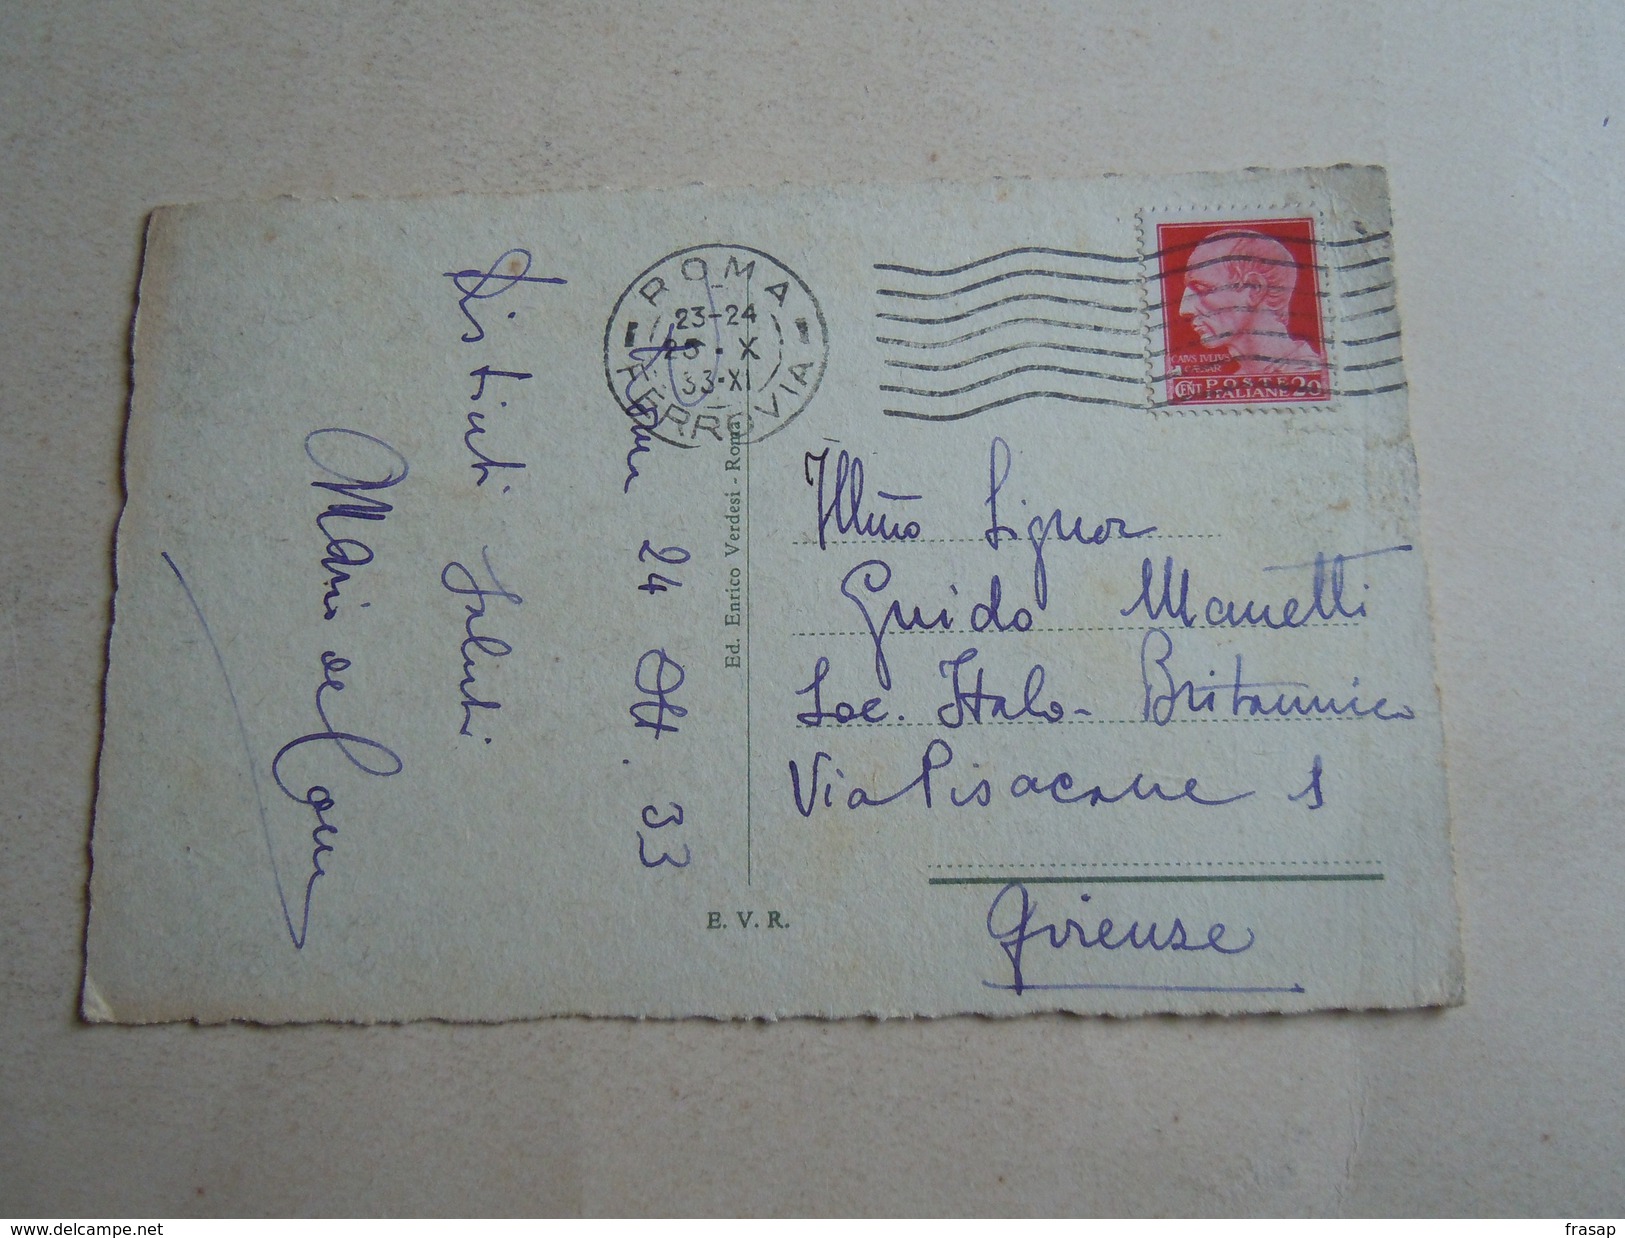 ROMA
23-24
X
33-XI
FERROVIA
CAIVS IVLIVS
CÆSAR
CENT POSTE 20
ITALIANE
Roma 24 Ott. 33
Distinti Saluti
Mario de
Ed. Enrico Verdesi - Roma
E. V. R.
Illmo Signor
Guido Manetti
Soc. Italo-Britannica
Via Pisacane 1
Firenze
www.delcampe.net
frasap